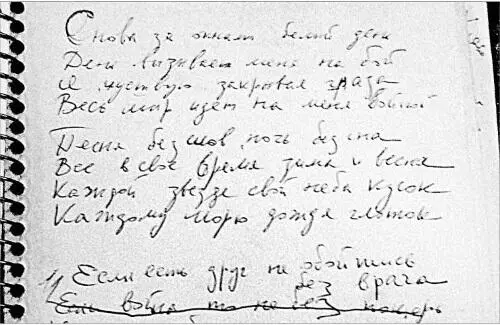 Снова за окнами белый день
День вызывает меня на бой
Я чуствую закрывая глаза
Весь мир идет на меня войной
Песня без слов, ночь без сна
Все в свое время зима и весна
Каждой звезде свой неба кусок
Каждому морю дождя глоток
Если есть друг не обойтись
без врача
Если война то не без